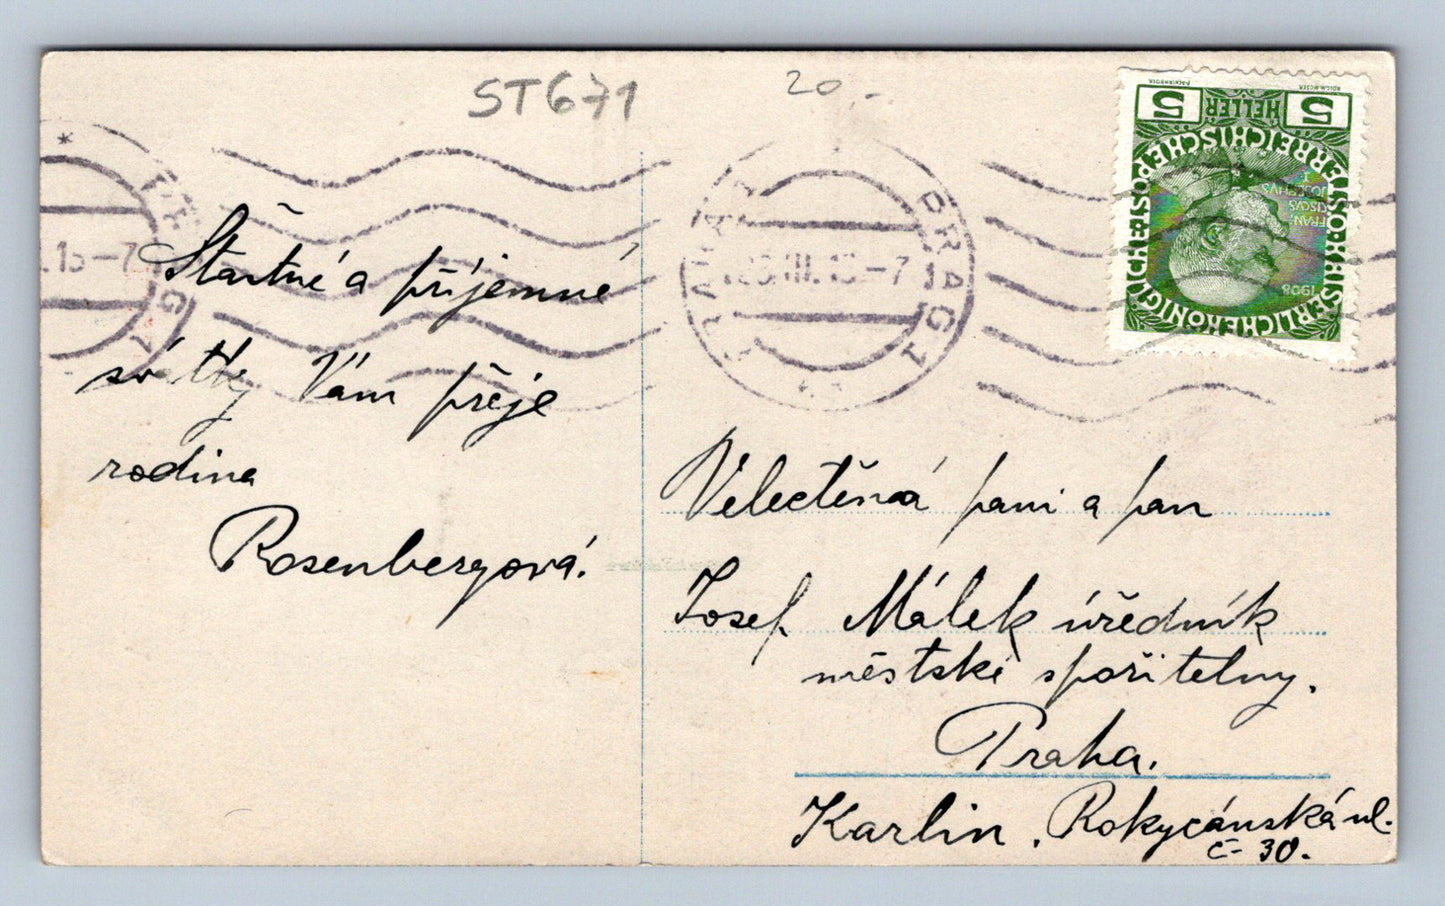 ST671
20.-
5 HELLER 5
KAISERLICHE KÖNIGLICHE ÖSTERREICHISCHE POST
FRAN-
CISCVS
JOSEPHVS
I
1908
PRAG 1
PRAHA 1
III.13-7
Štastné a příjemné
svátky Vám přeje
rodina
Rosenbergová.
Velectěná paní a pan
Josef Málek úředník
městské spořitelny.
Praha.
Karlin, Rokycánská ul.
č- 30.